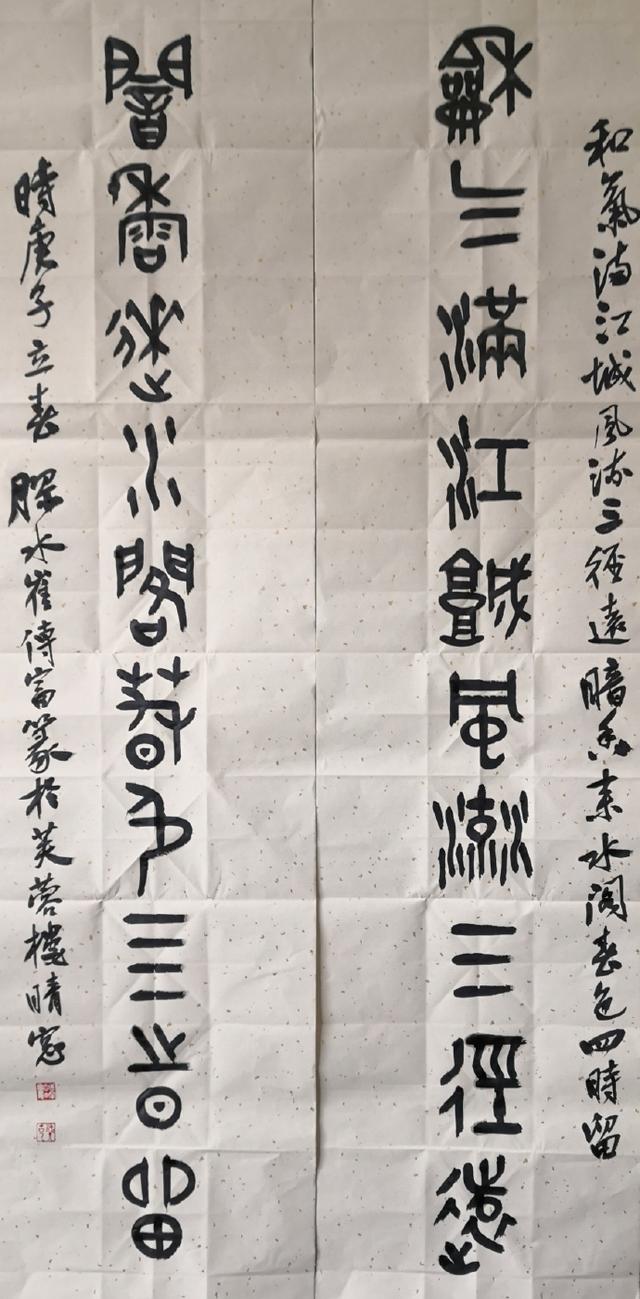 和氣滿江城風流三徑遠暗香來水閣春色四時留
龢气滿江城風流三徑遠
闇香來水閣春色四時留
時庚子立春 膠水崔傳富篆於芙蓉樓晴窓